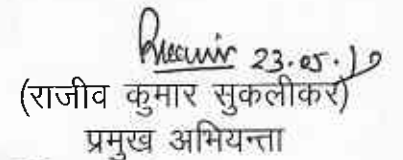 23.05.19
(राजीव कुमार सुकलीकर)
प्रमुख अभियन्ता